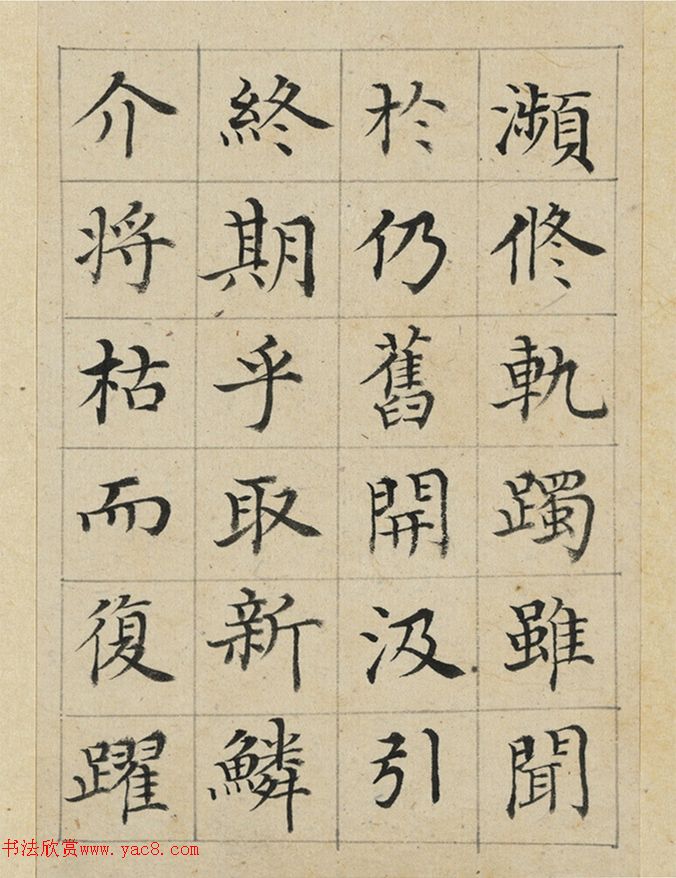 瀕修軌躅雖聞
於仍舊開汲引
終期乎取新鱗
介将枯而復躍
书法欣赏www.yac8.com